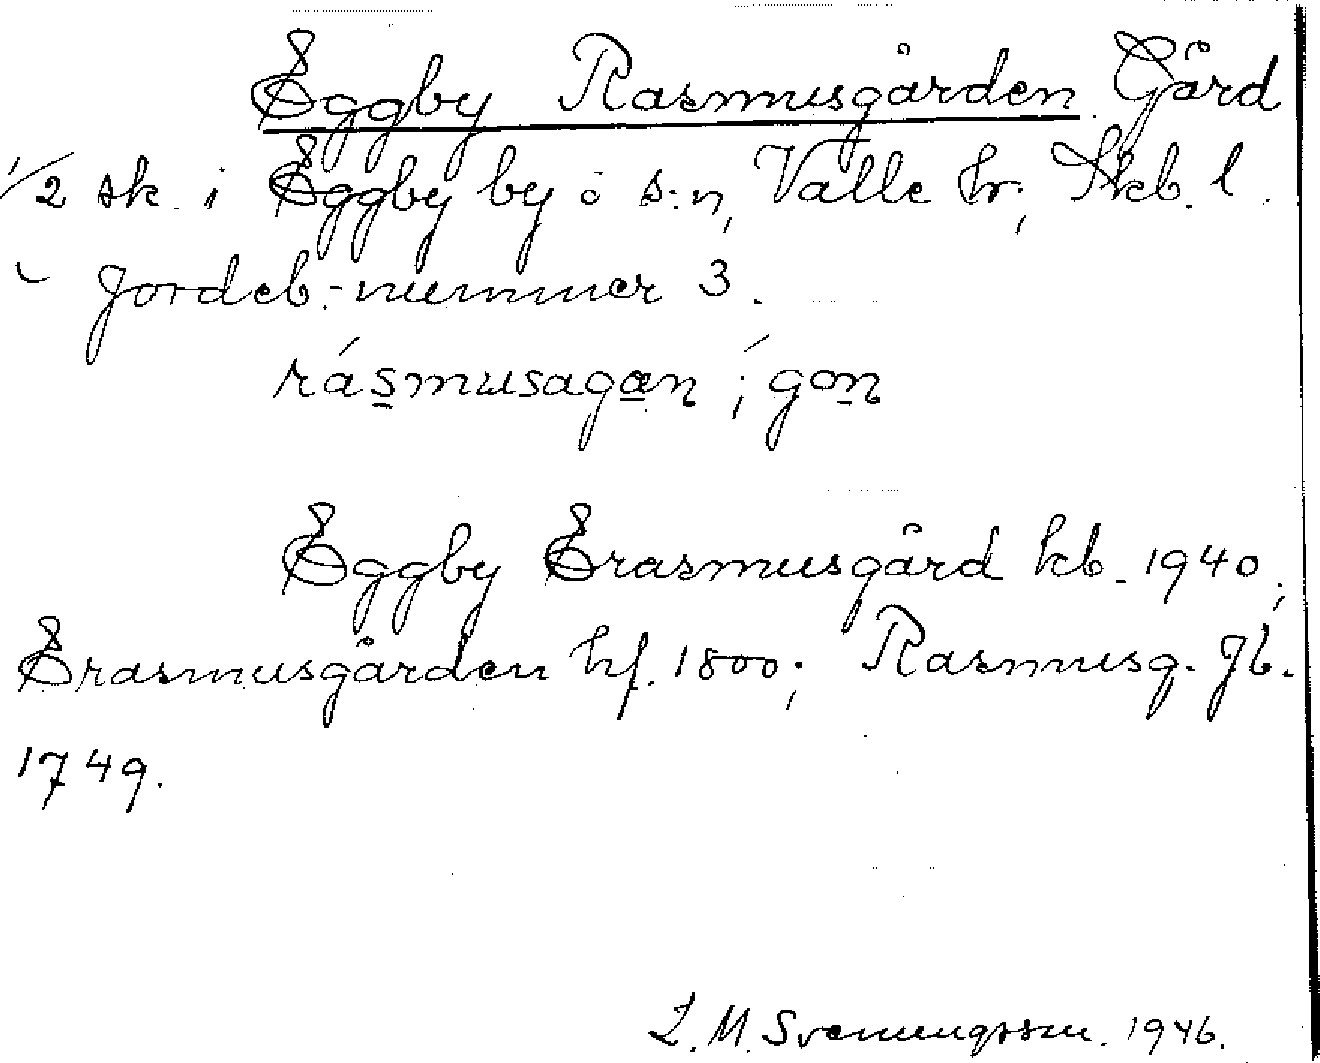 Eggby Rasmusgården Gård
1/2 sk. i Eggby by o s:n, Valle hr; Skb. l.
Jordeb.-nummer 3.
rásmusagan ; gon
Eggby Erasmusgård kb. 1940;
Erasmusgården hf. 1800; Rasmusg. Jb.
1749.
L. M. Svenungsson. 1946.